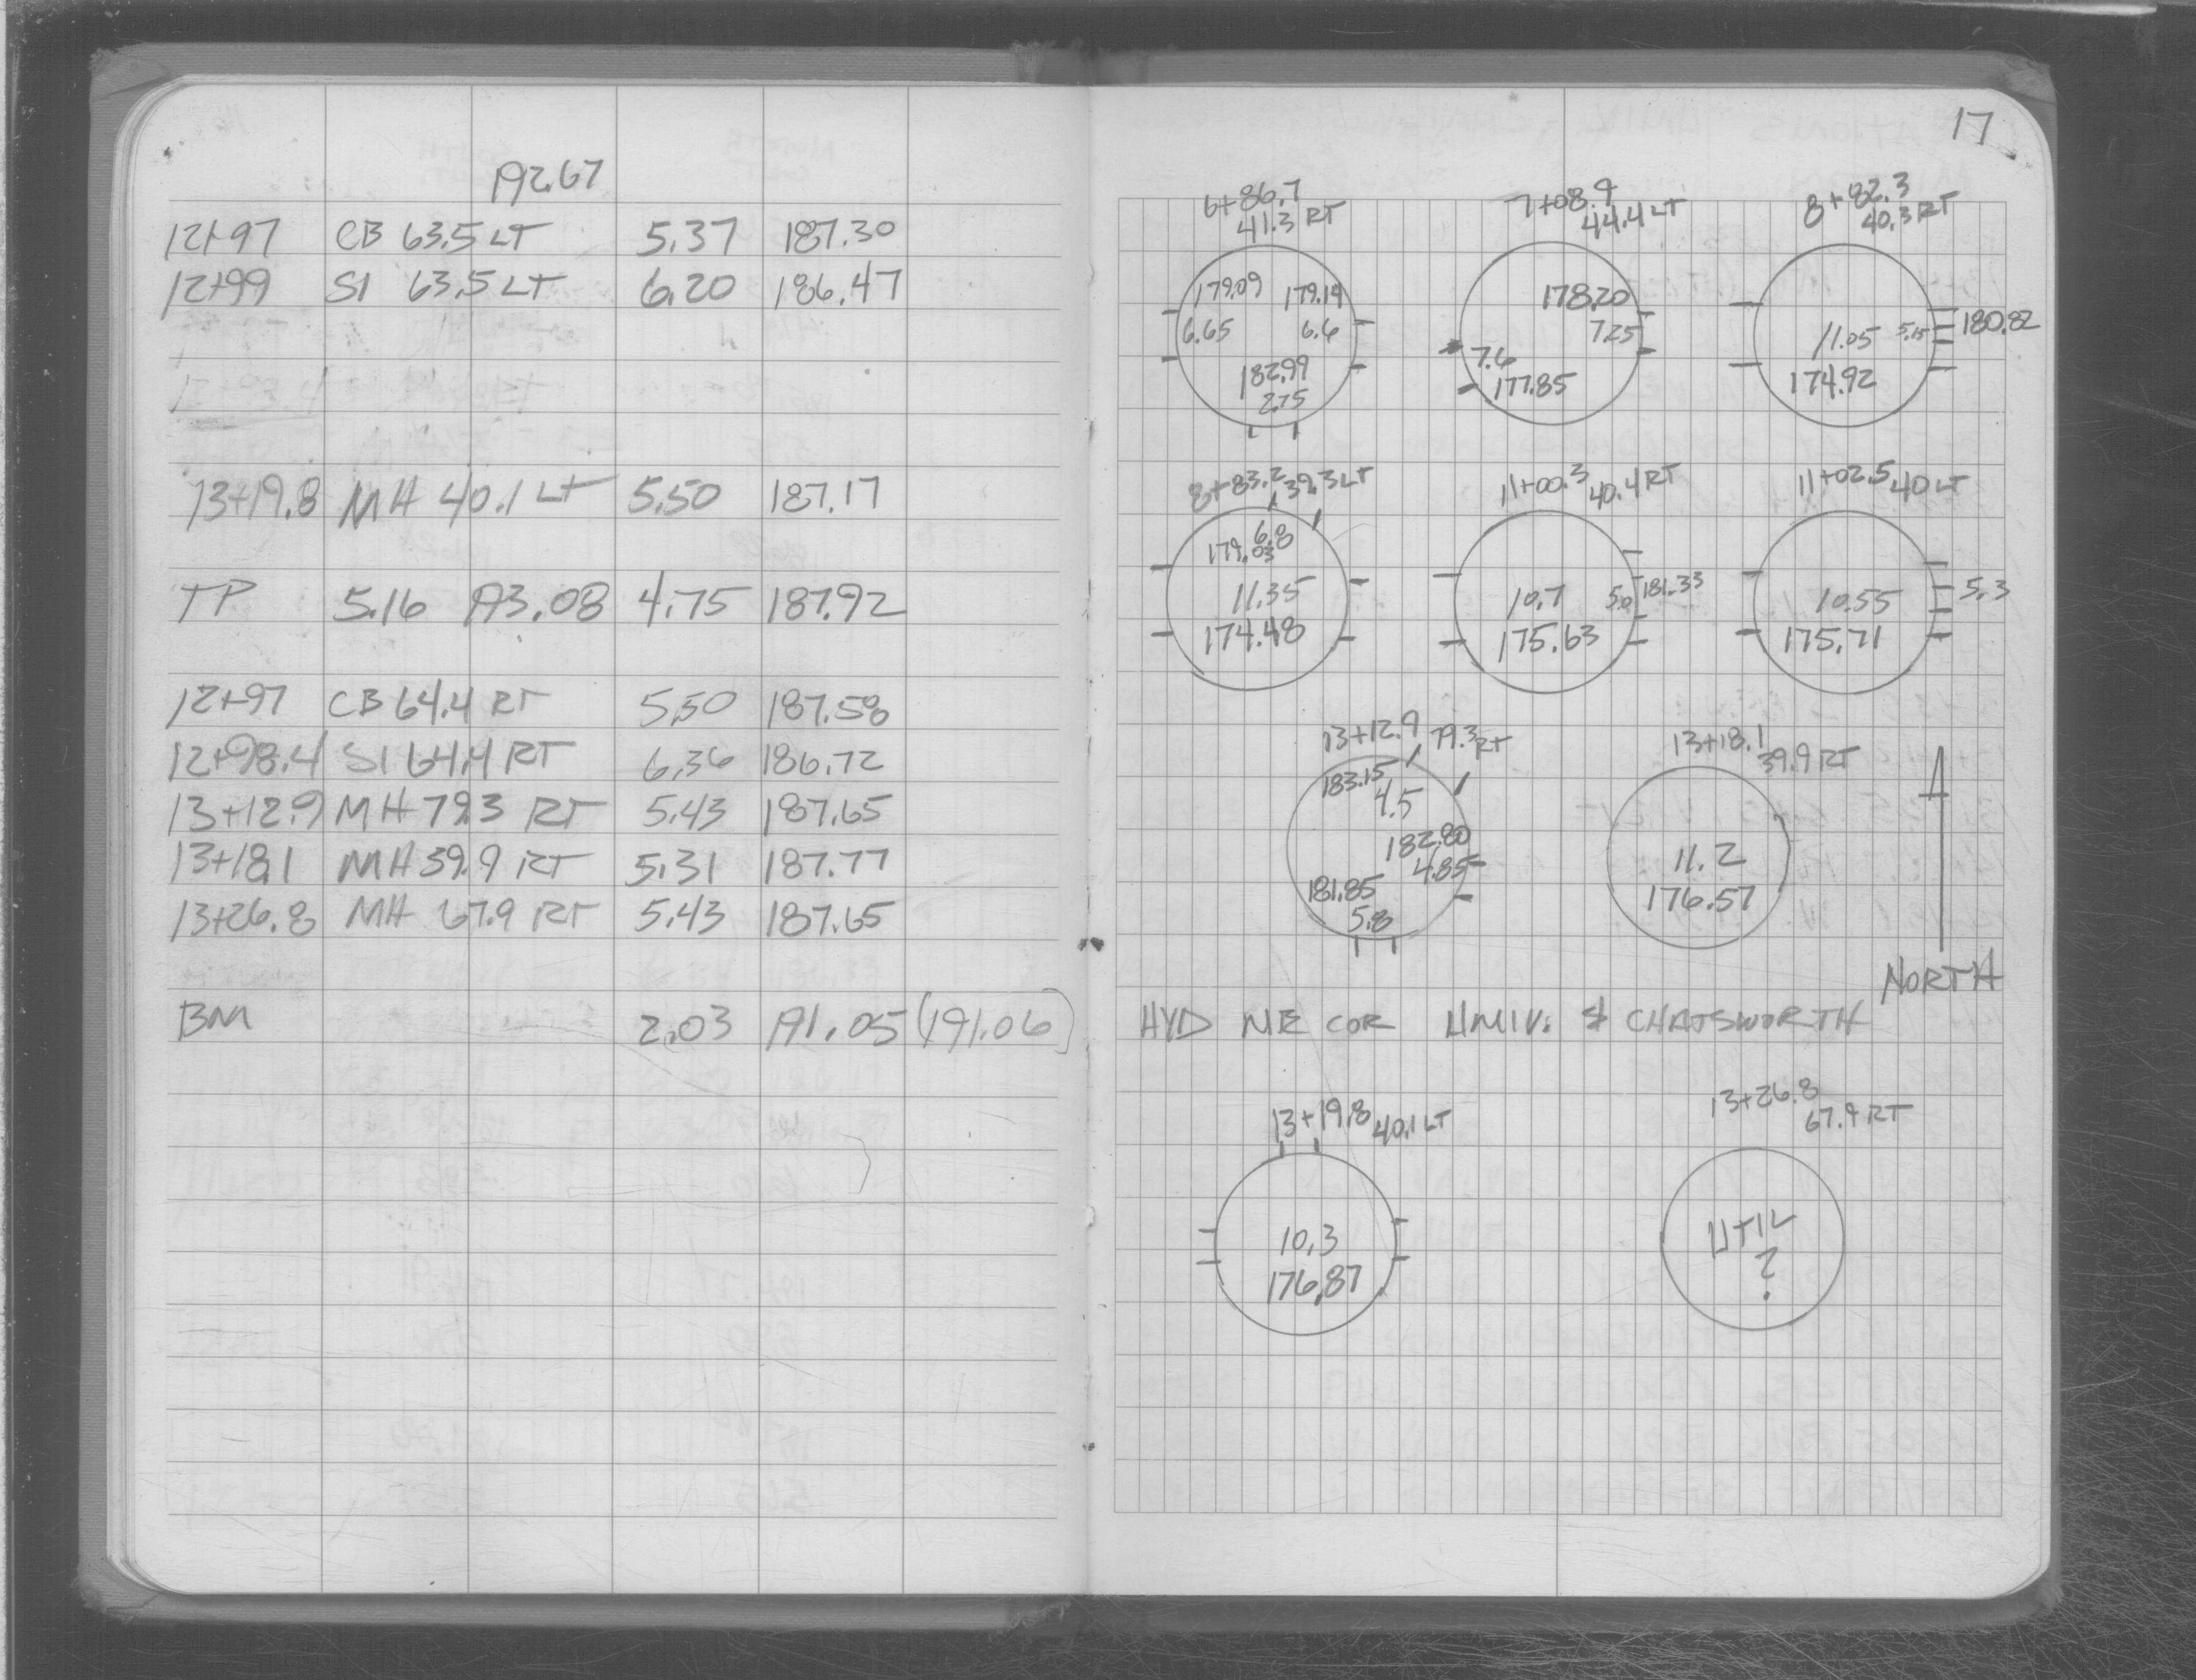 192.67
12+97 CB 63.5 LT 5.37 187.30
12+99 SI 63.5 LT 6.20 186.47
13+19.8 MH 40.1 LT 5.50 187.17
TP 5.16 193.08 4.75 187.92
12+97 CB 64.4 RT 5.50 187.58
12+98.4 SI 64.4 RT 6.36 186.72
13+12.9 MH 79.3 RT 5.43 187.65
13+18.1 MH 39.9 RT 5.31 187.77
13+26.8 MH 67.9 RT 5.43 187.65
BM 2.03 191.05 (191.06)
17
6+86.7
41.3 RT
179.09 179.14
6.65 6.6
182.99
2.75
7+08.9
44.4 LT
178.20
7.25
7.6
177.85
8+82.3
40.3 RT
11.05 5.15 180.82
174.92
8+83.2 39.3 LT
6.8
179.03
11.35
174.48
11+00.3 40.4 RT
10.7 5.0 181.33
175.63
11+02.5 40 LT
10.55 5.3
175.71
13+12.9 79.3 RT
183.15
4.5
182.80
4.85
181.85
5.8
13+18.1
39.9 RT
11.2
176.57
NORTH
HYD NE COR UNIV. & CHATSWORTH
13+19.8 40.1 LT
10.3
176.87
13+26.8
67.9 RT
UTIL
?